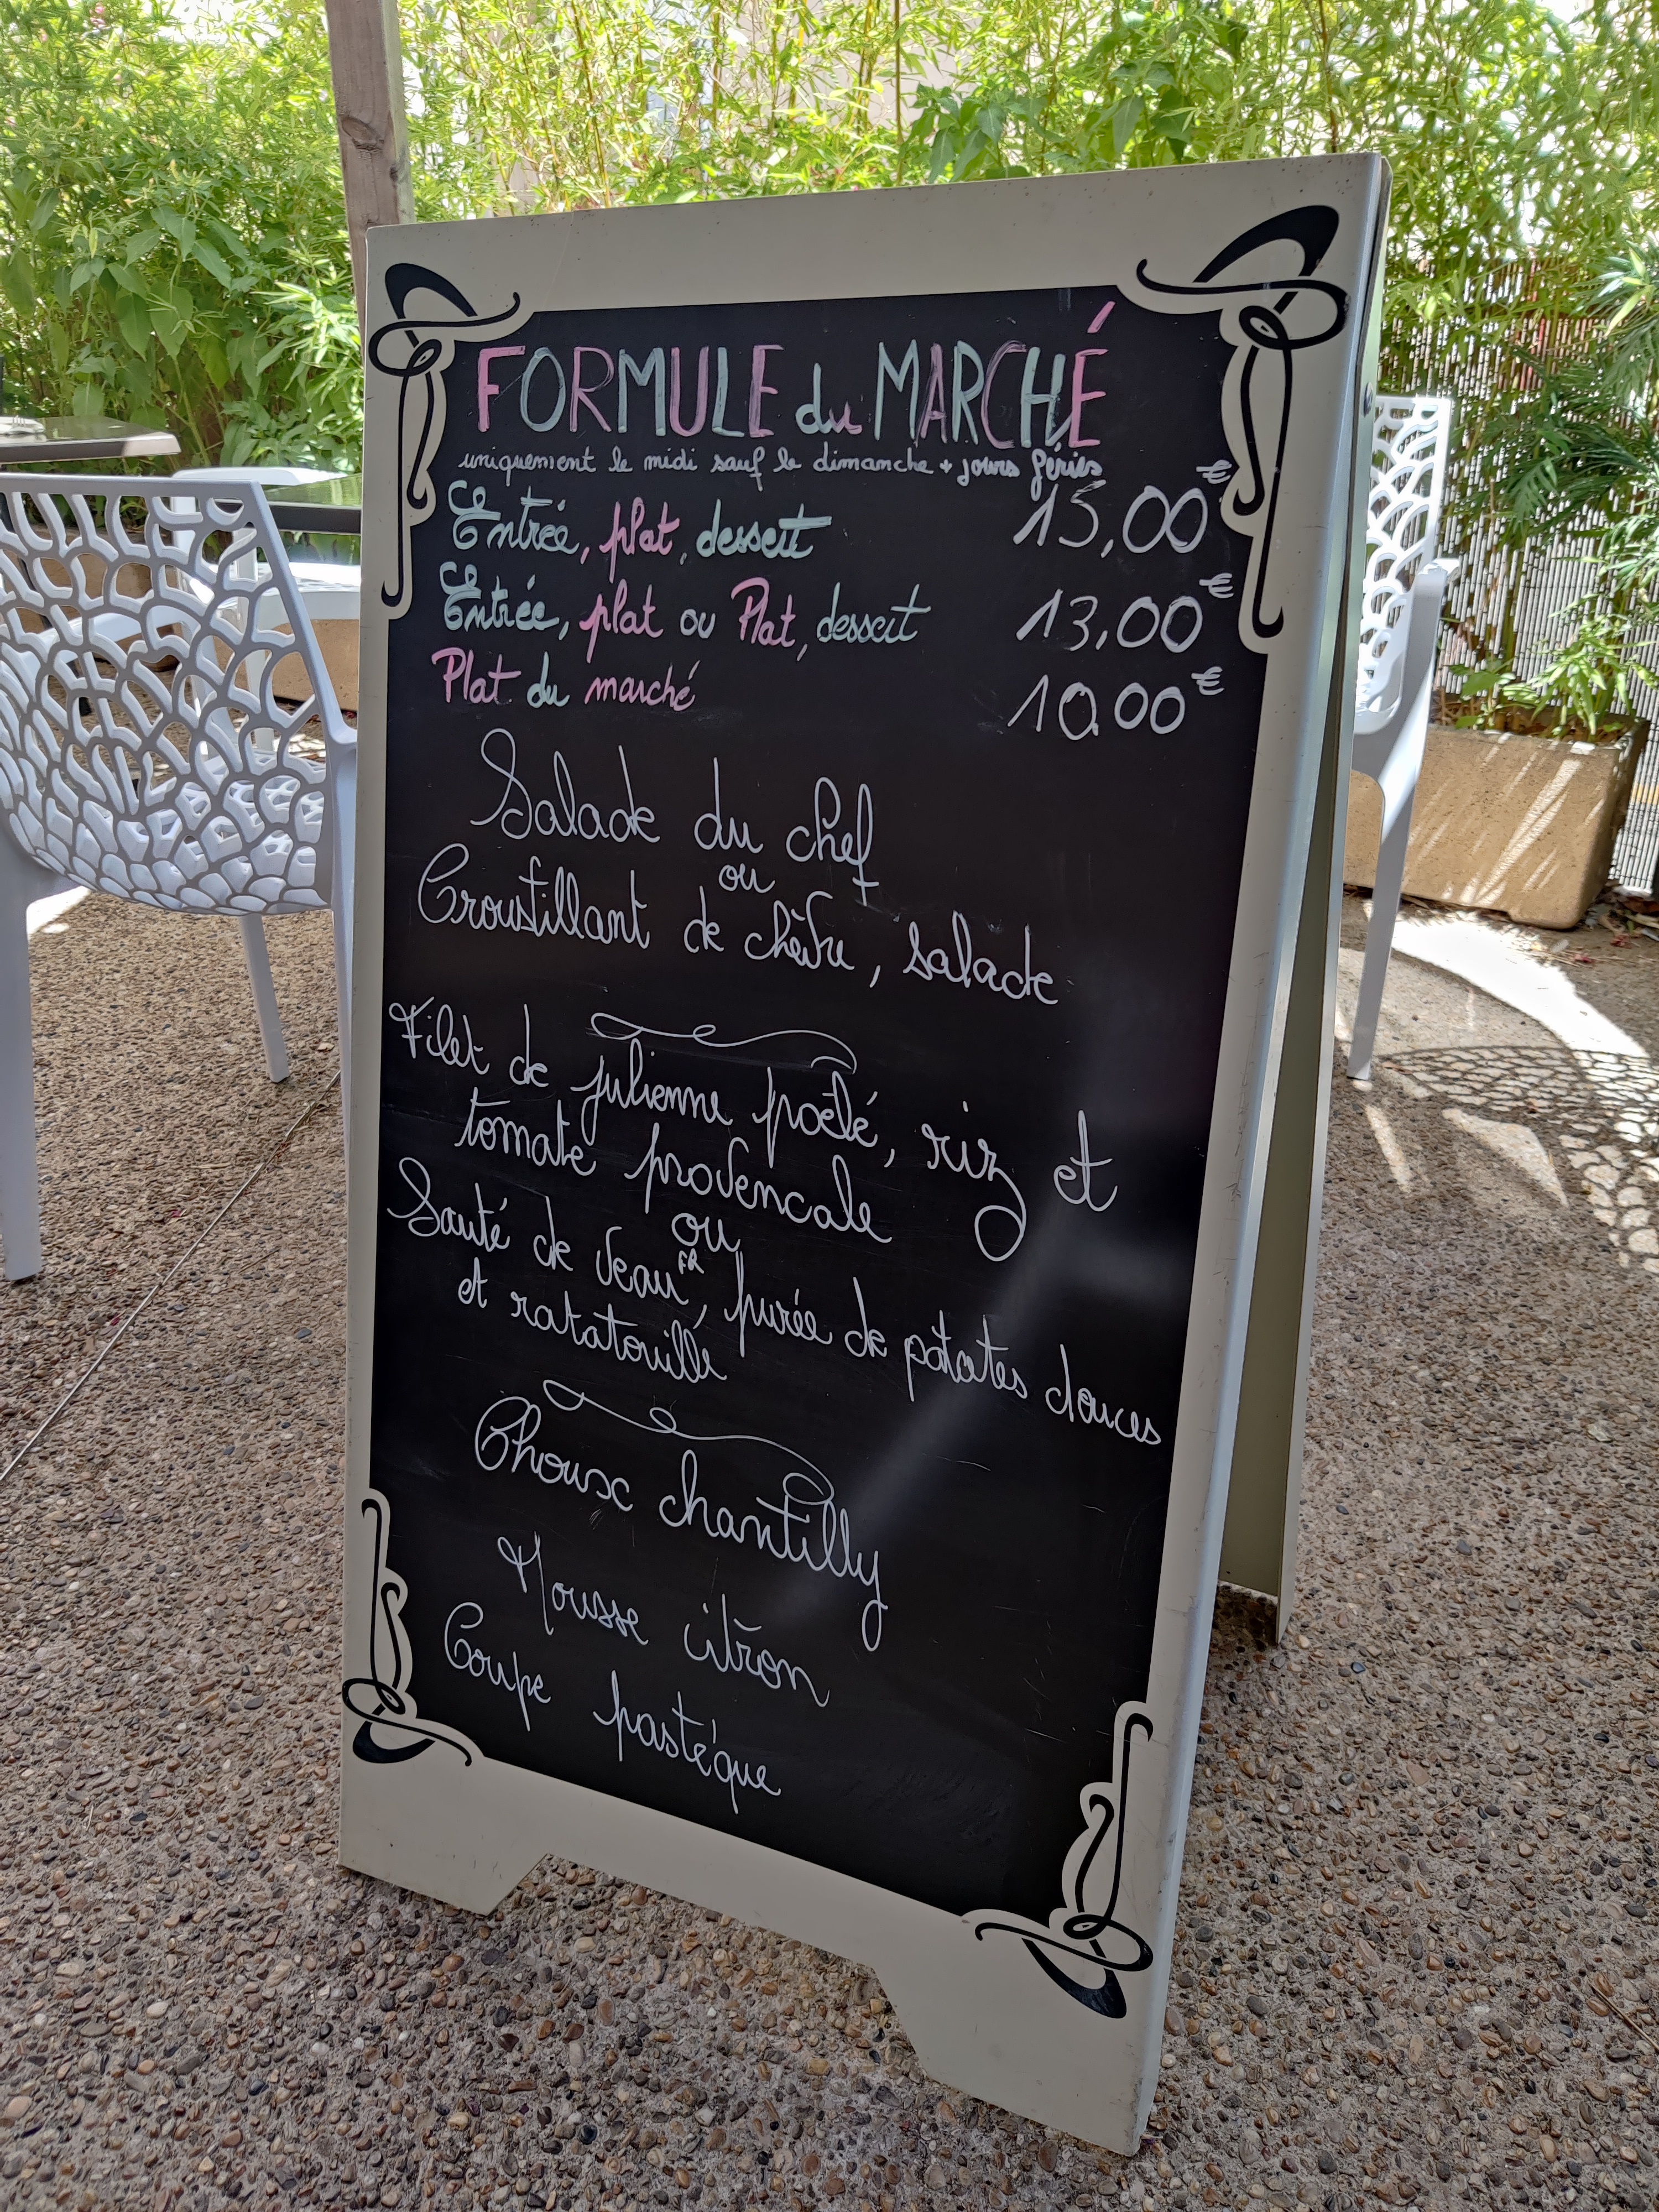 FORMULE du MARCHÉ
uniquement le midi sauf le dimanche + jours fériés
Entrée, plat, dessert 15,00€
Entrée, plat ou Plat, dessert 13,00€
Plat du marché 10,00€
Salade du chef
ou
Croustillant de chèvre, salade
Filet de julienne poêlé, riz et
tomate provencale
ou
Sauté de veau FR, purée de patates douces
et ratatouille
Choux chantilly
Mousse citron
Coupe pastéque